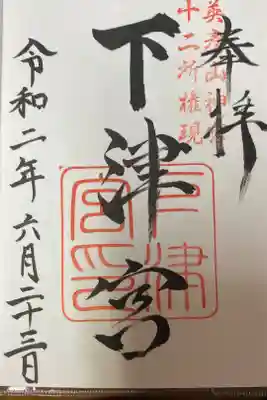 奉拝
英彦山神宮
十二所権現
下津宮
下津
宮印
令和二年六月二十三日